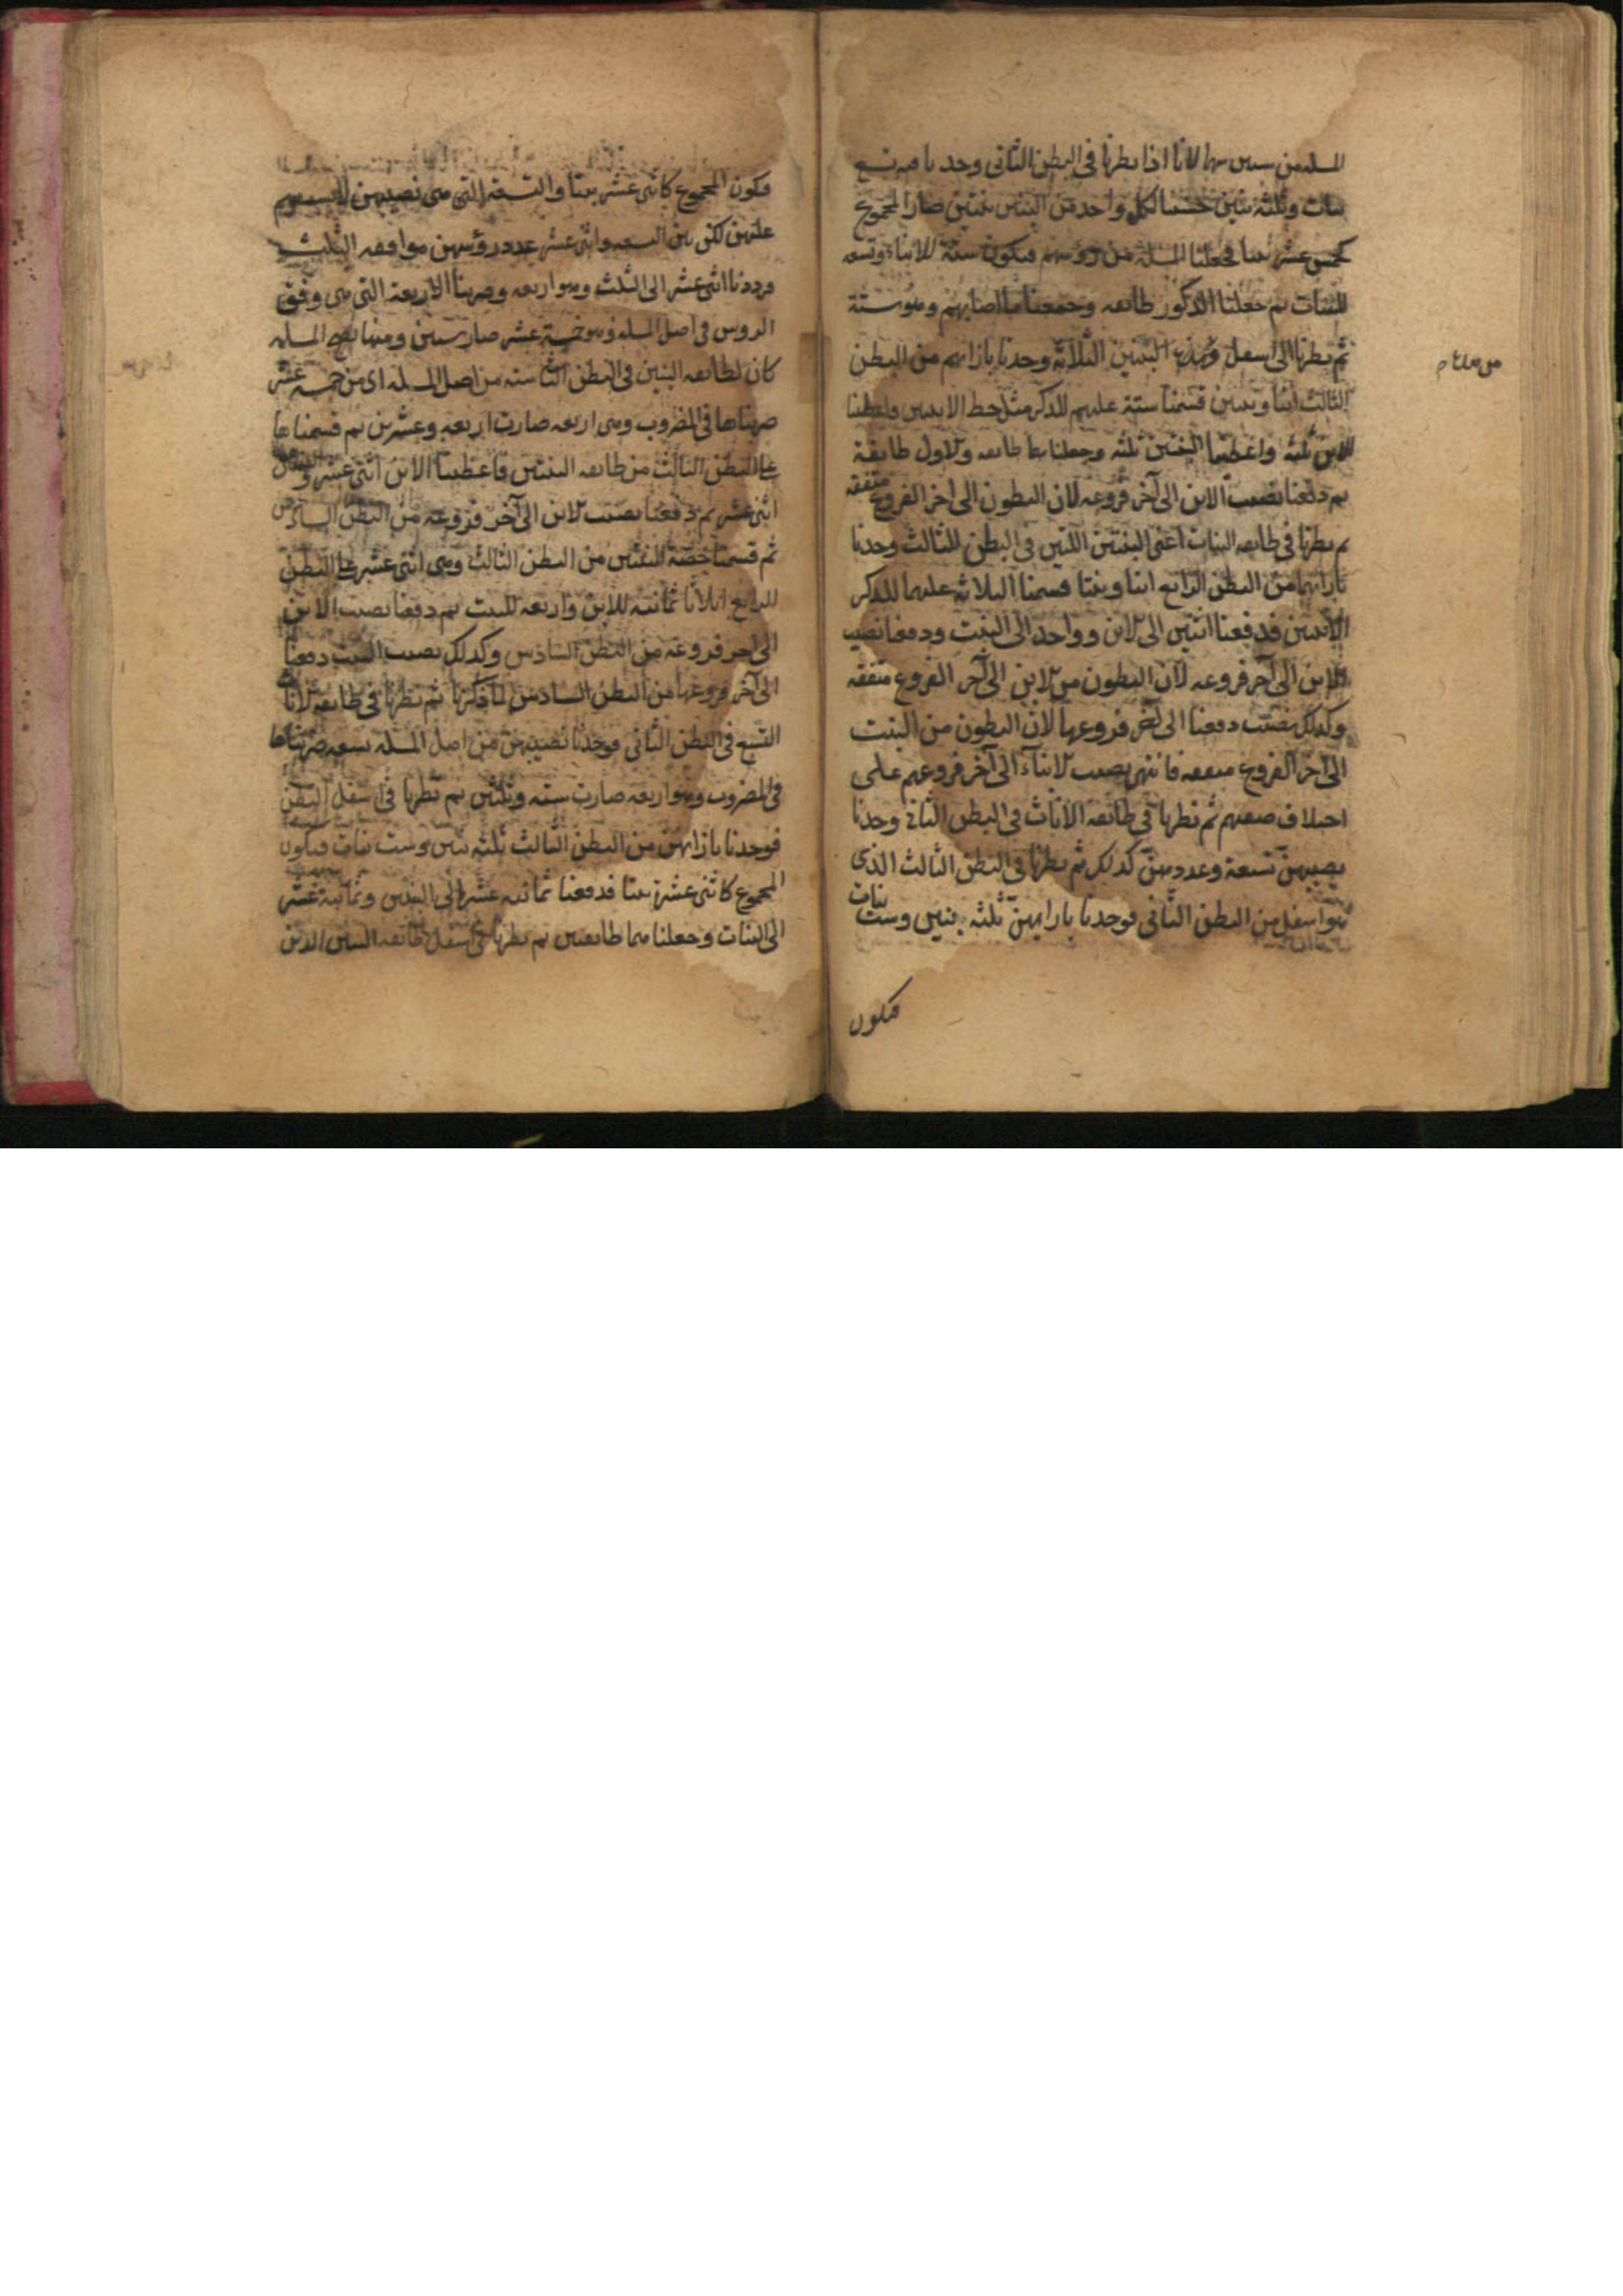 المسله من ستين سهما لانا اذا نظرنا فى البطن الثانى وجدنا فيه تسع
بنات وثلثه بنين حسبنا لكل واحد من البنين بنتين صار المجموع
كخمس عشر بنتا فجعلنا المسله من رؤسهم فيكون ستة للابناء وتسعه
للبنات ثم جعلنا الذكور طائفه وجمعنا ما اصابهم وهو ستة
ثم نظرنا الى اسفل البنين الثلاثة وجدنا بازائهم من البطن
الثالث ابنا وبنتين قسمنا ستة عليهم للذكر مثل حظ الانثيين فاعطينا
الابن ثلثه واعطينا البنتين ثلثه وجعلناهما طائفه والاول طائفة
ثم دفعنا نصيب الابن الى آخر فروعه لان البطون الى آخر الفروع متفقه
ثم نظرنا فى طائفه البنات اعنى البنتين اللتين فى البطن الثالث وجدنا
بازائهما من البطن الرابع ابنا وبنتا قسمنا الثلاثه عليهما للذكر
الانثيين فدفعنا اثنين الى الابن وواحد الى البنت ودفعنا نصيب
الابن الى آخر فروعه لان البطون من الابن الى آخر الفروع متفقه
وكذلك نصيب دفعنا الى آخر فروعها لان البطون من البنت
الى آخر الفروع متفقه فانتهى نصيب الابناء الى آخر فروعهم على
اختلاف صنفهم ثم نظرنا فى طائفه الاناث فى البطن الثانى وجدنا
نصيبهن تسعة وعددهن كذلك ثم نظرنا فى البطن الثالث الذى
هو اسفل من البطن الثانى فوجدنا بازائهن ثلثه بنين وست بنات
فيكون
فيكون المجموع كاثنى عشر بنتا والتسعة التى هى نصيبهن لا يستقيم
عليهن لكن بين التسعه واثنى عشر عدد رؤسهن موافقه الثلث
فرددنا اثنى عشر الى الثلث وهو اربعه وضربنا الاربعة التى هى وفق
الروس فى اصل المسله وهو خمسة عشر صار ستين ومنها تصح المسله
كان لطائفه البنين فى البطن الثانى سته من اصل المسله اى من خمسه عشر
ضربناها فى المضروب وهى اربعه صارت اربعه وعشرين ثم قسمناها
على البطن الثالث من طائفه البنتين فاعطينا الابن اثنى عشر
اثنى عشر ثم دفعنا نصيب الابن الى آخر فروعه من البطن السادس
ثم قسمنا حصة البنتين من البطن الثالث وهى اثنى عشر على البطن
الرابع اثلاثا ثمانيه للابن واربعه للبنت ثم دفعنا نصيب الابن
الى آخر فروعه من البطن السادس وكذلك نصيب البنت دفعنا
الى آخر فروعها من البطن السادس لما ذكرنا ثم نظرنا فى طائفه الاناث
التسع فى البطن الثانى فوجدنا نصيبهن من اصل المسله تسعه ضربناها
فى المضروب وهو اربعه صارت سته وثلثين ثم نظرنا فى اسفل البطن
فوجدنا بازائهن من البطن الثالث ثلثه بنين وست بنات فيكون
المجموع كاثنى عشرة بنتا فدفعنا ثمانيه عشر الى البنين وثمانيه عشر
الى البنات وجعلناهما طائفتين ثم نظرنا فى اسفل طائفه البنين الذين